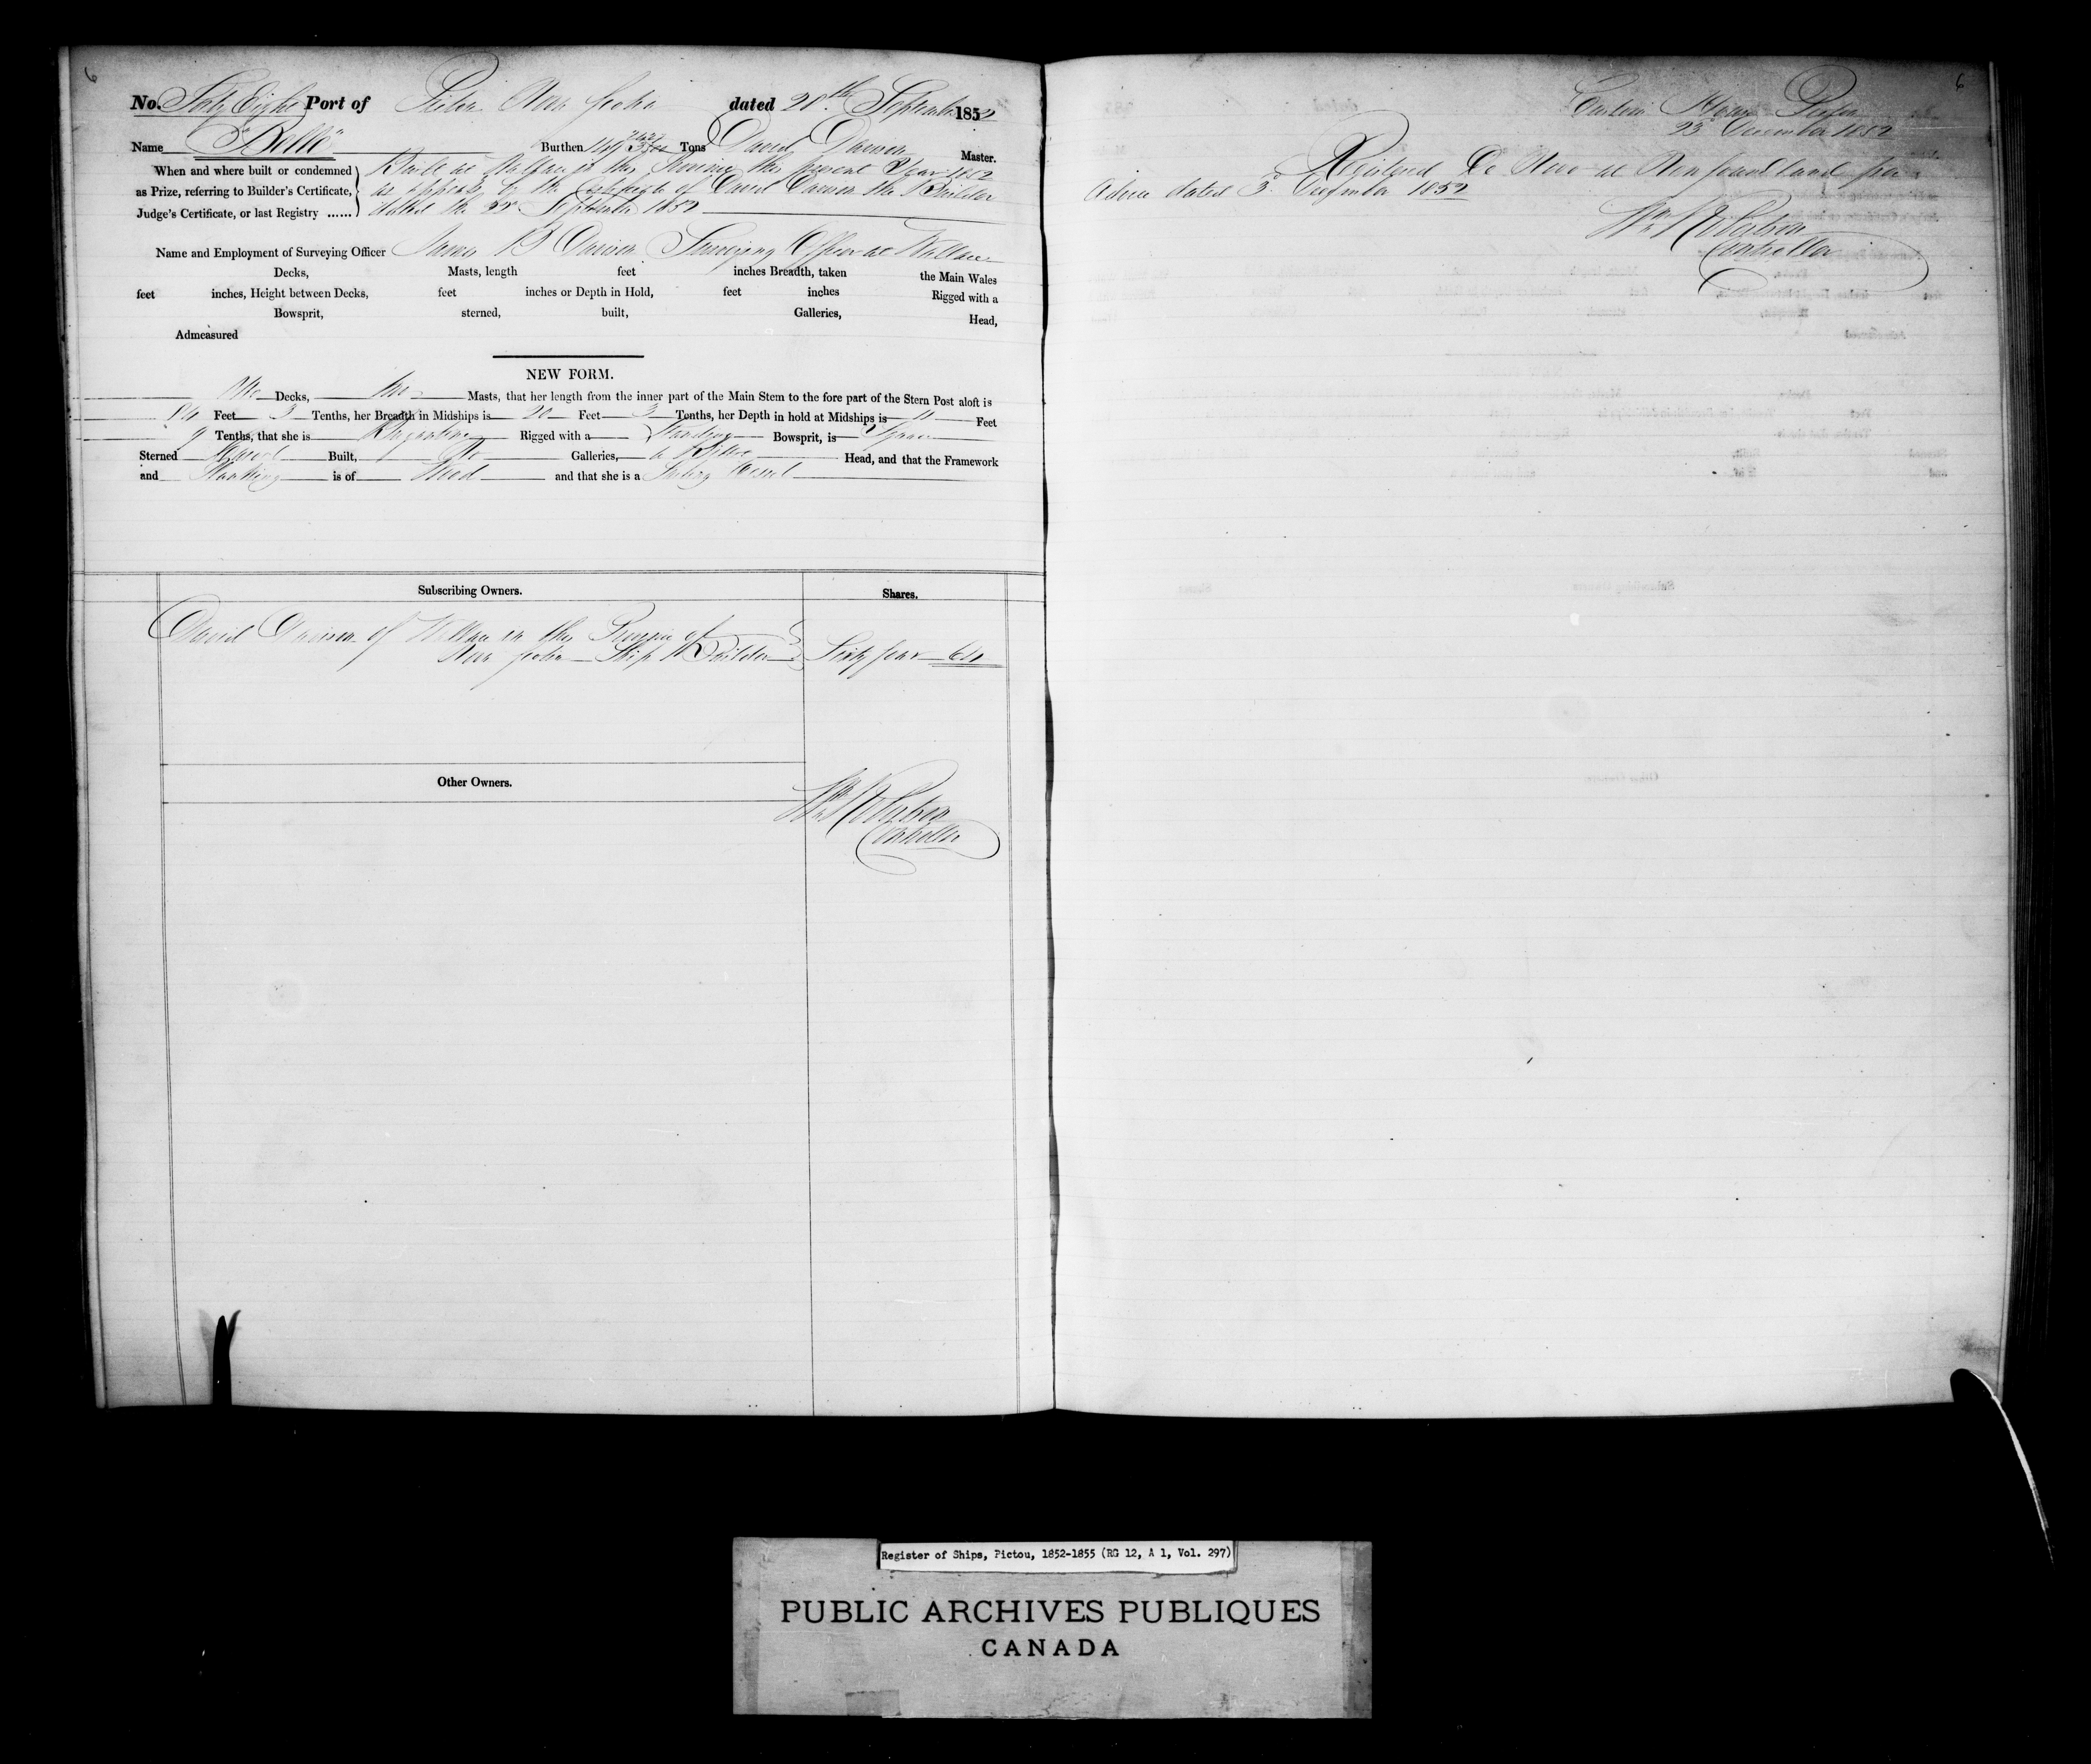 6
No. Sixty Eight Port of Pictou Nova Scotia dated 28th September 1852
Name "Belle" Burthen 149 Tons David Davison Master.
When and where built or condemned Built at Wallace in this Province the present Year 1852
as Prize, referring to Builder's Certificate, as appears by the Certificate of David Davison the Builder
Judge's Certificate, or last Registry ...... dated the 22d September 1852
Name and Employment of Surveying Officer James B Davison Surveying Officer at Wallace
Decks, Masts, length feet inches Breadth, taken the Main Wales
feet inches, Height between Decks, feet inches or Depth in Hold, feet inches Rigged with a
Bowsprit, sterned, built, Galleries, Head,
Admeasured
NEW FORM.
One Decks, two Masts, that her length from the inner part of the Main Stem to the fore part of the Stern Post aloft is
Feet 3 Tenths, her Breadth in Midships is 20 Feet 3 Tenths, her Depth in hold at Midships is 11 Feet
9 Tenths, that she is Brigantine Rigged with a Standing Bowsprit, is Square
Sterned Carvel Built, No Galleries, a Billet Head, and that the Framework
and Planking is of Wood and that she is a Sailing Vessel
Subscribing Owners. Shares.
David Davison of Wallace in the Province of
Nova Scotia Ship Builder Sixty four 64
Other Owners.
Wm Robertson
Controller
6
Custom House Pictou
23d December 1852
Registered De Novo at Newfoundland per
Advice dated 3d December 1852
Wm Robertson
Controller
Register of Ships, Pictou, 1852-1855 (RG 12, A 1, Vol. 297)
PUBLIC ARCHIVES PUBLIQUES
CANADA